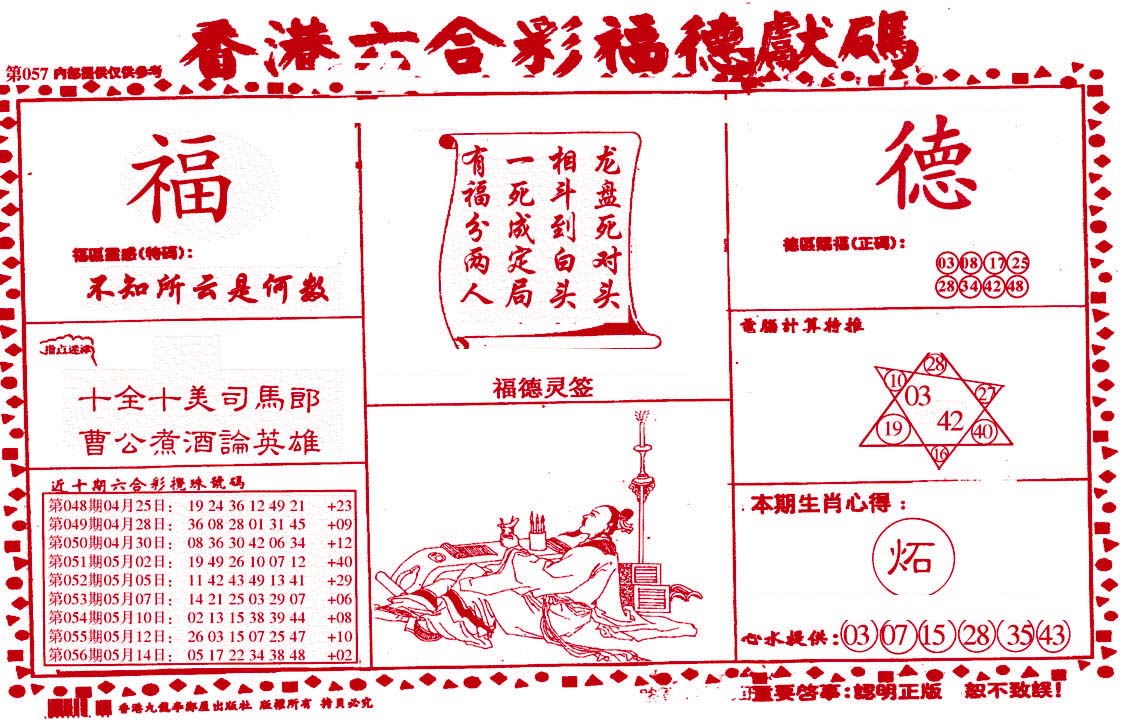 香港六合彩福德獻碼
第057 内部提供仅供参考
福
福區靈感(特碼):
不知所云是何数
指点迷津
十全十美司馬郎
曹公煮酒論英雄
近十期六合彩攪珠號碼
第048期04月25日: 19 24 36 12 49 21 +23
第049期04月28日: 36 08 28 01 31 45 +09
第050期04月30日: 08 36 30 42 06 34 +12
第051期05月02日: 19 49 26 10 07 12 +40
第052期05月05日: 11 42 43 49 13 41 +29
第053期05月07日: 14 21 25 03 29 07 +06
第054期05月10日: 02 13 15 38 39 44 +08
第055期05月12日: 26 03 15 07 25 47 +10
第056期05月14日: 05 17 22 34 38 48 +02
龙盘死对头
相斗到白头
一死成定局
有福分两人
福德灵签
德
德區賜福(正碼):
03 08 17 25
28 34 42 48
電腦計算特推
28
10 03 27
19 42 40
16
本期生肖心得:
炻
心水提供:03 07 15 28 35 43
重要啓事:認明正版 恕不致誤!
香港九龍 出版社 版權所有 拷貝必究